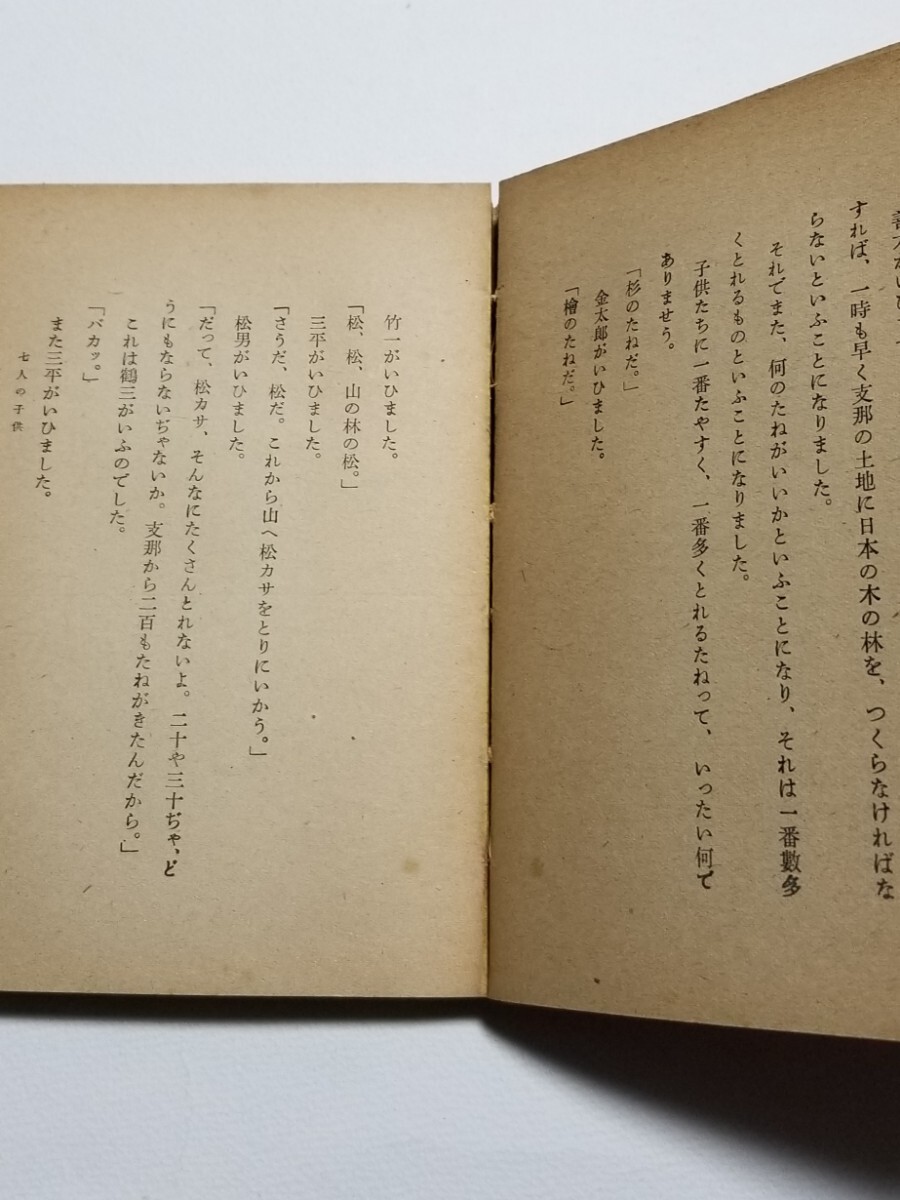 すれば、一時も早く支那の土地に日本の木の林を、つくらなければな
らないといふことになりました。
それでまた、何のたねがいいかといふことになり、それは一番數多
くとれるものといふことになりました。
子供たちに一番たやすく、一番多くとれるたねって、いったい何で
ありませう。
「杉のたねだ。」
金太郎がいひました。
「檜のたねだ。」
竹一がいひました。
「松、松、山の林の松。」
三平がいひました。
「さうだ、松だ。これから山へ松カサをとりにいかう。」
松男がいひました。
「だって、松カサ、そんなにたくさんとれないよ。二十や三十ぢや、ど
うにもならないぢゃないか。支那から二百もたねがきたんだから。」
これは鶴三がいふのでした。
「バカッ。」
また三平がいひました。
七人の子供